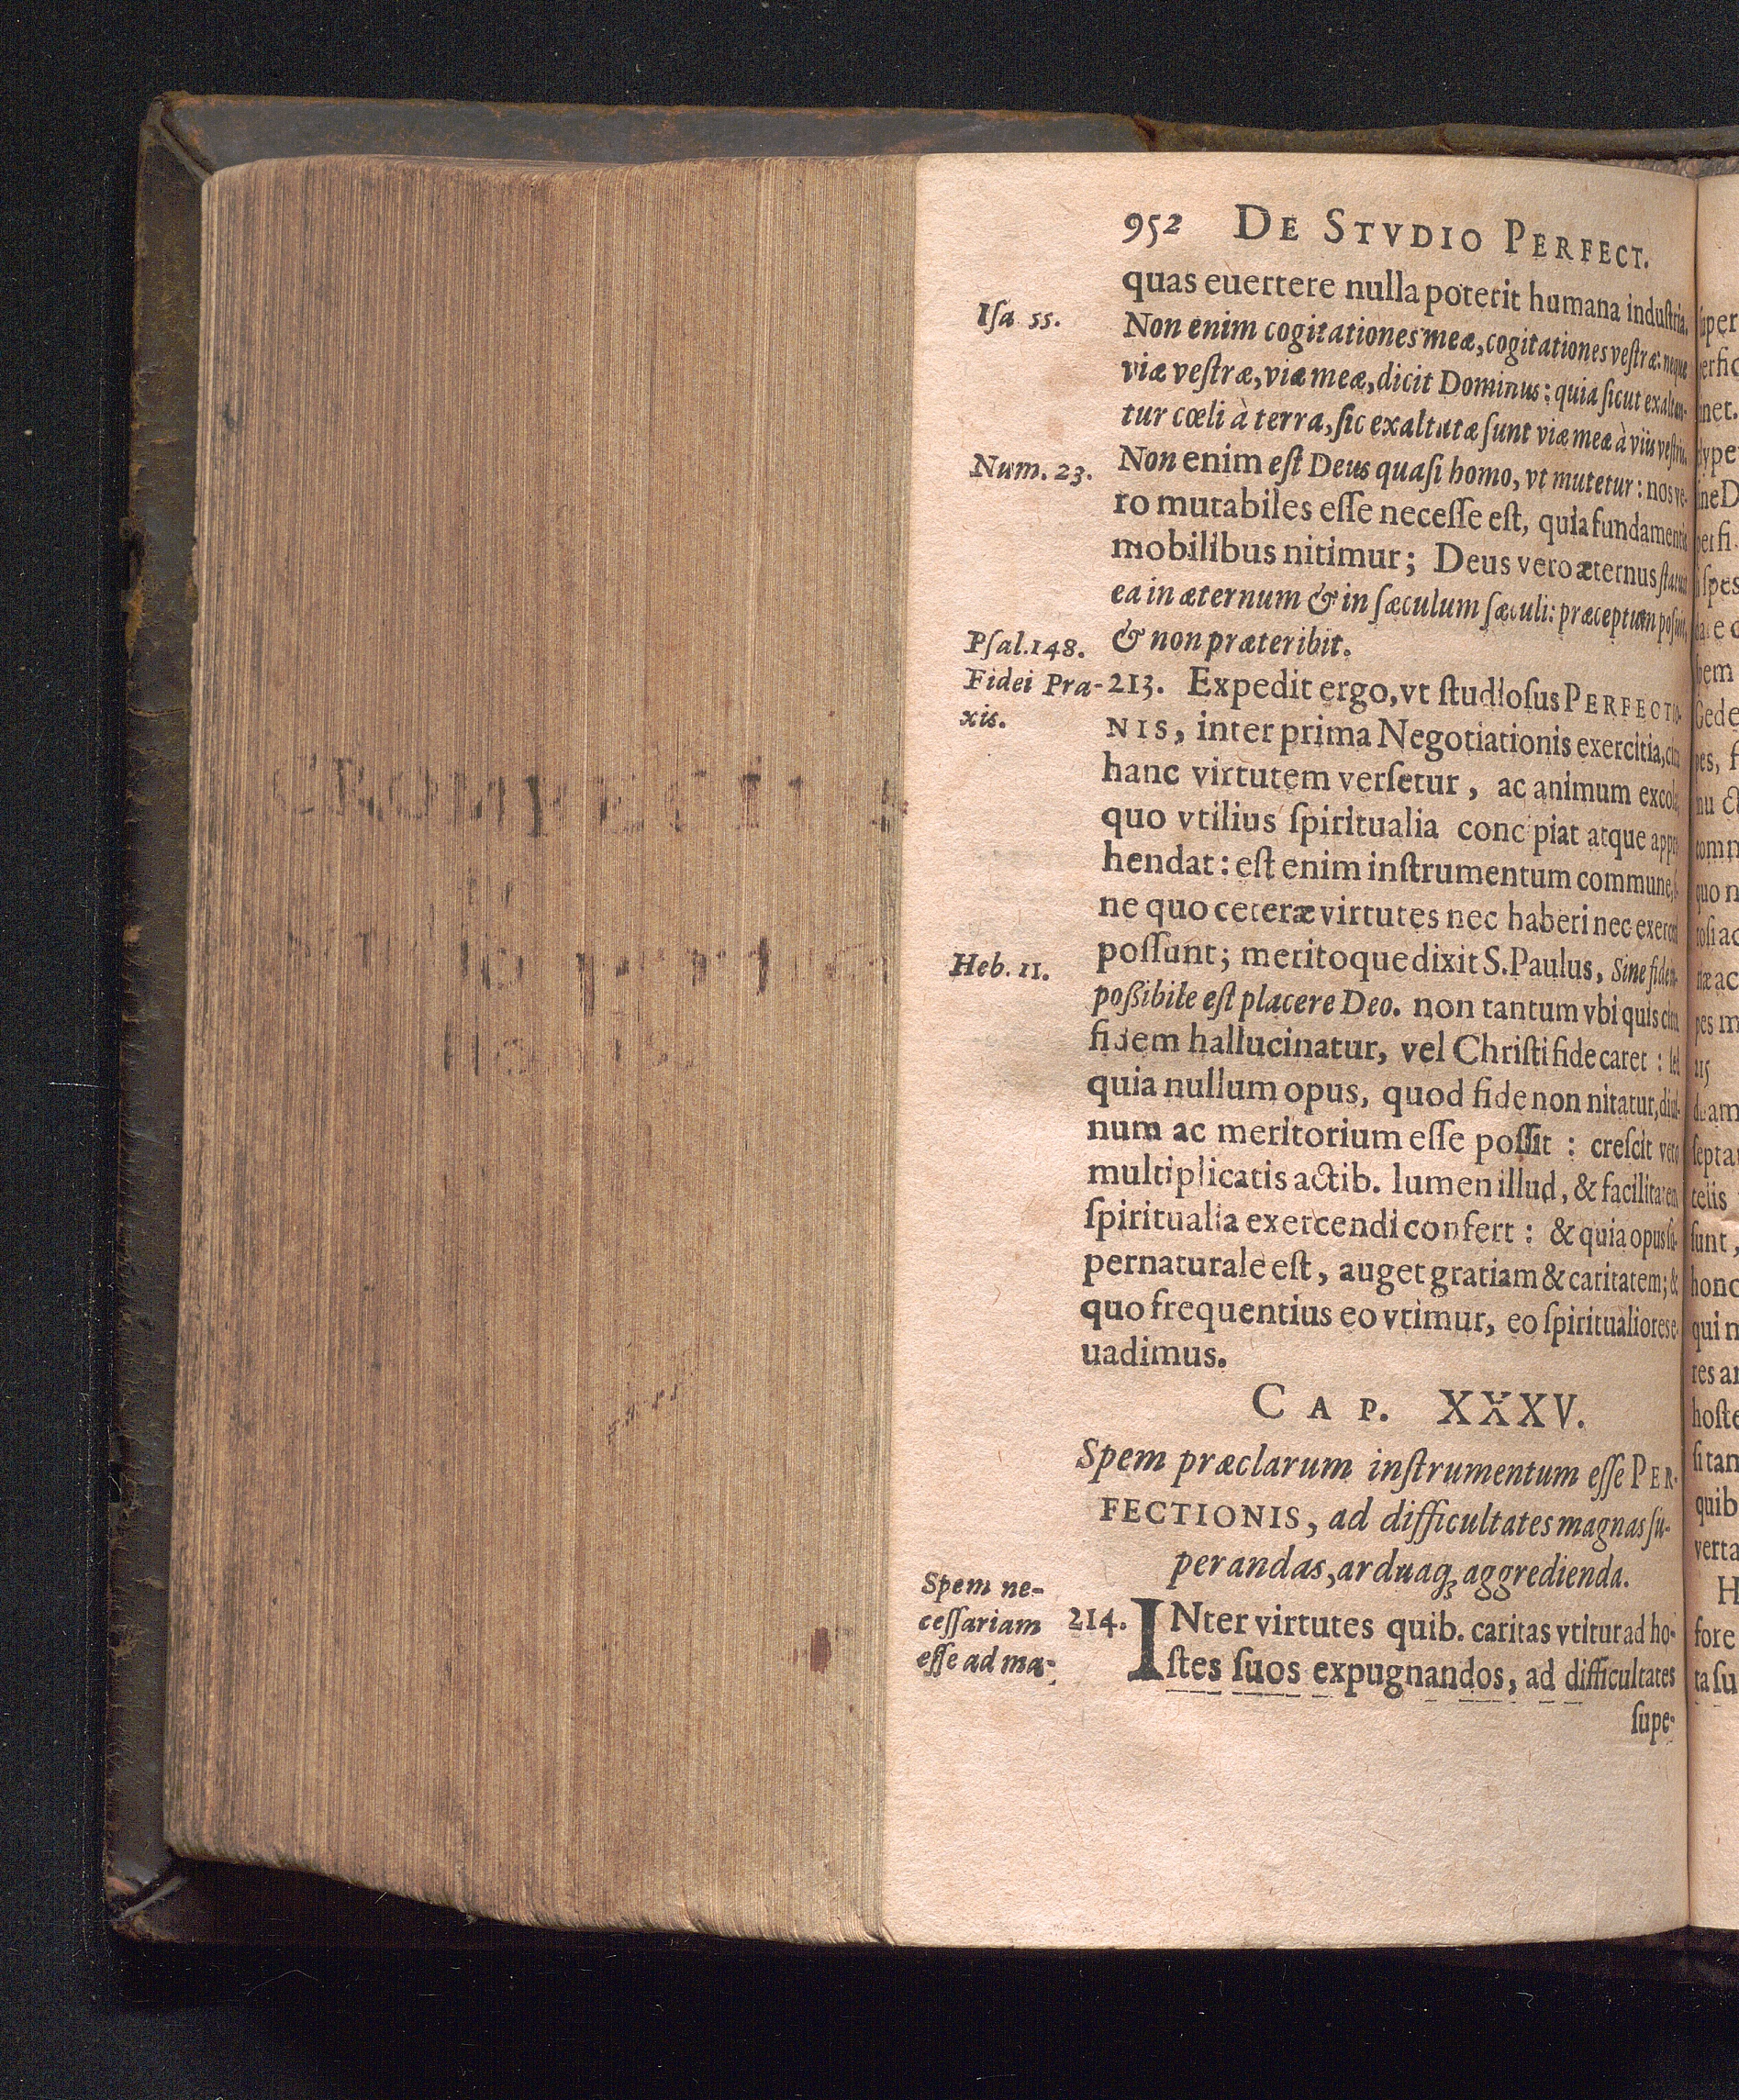 952 DE STVDIO PERFECT.
quas euertere nulla poterit humana industria.
Isa 55.
Non enim cogitationes meæ, cogitationes vestræ: neque
viæ vestræ, viæ meæ, dicit Dominus: quia sicut exaltan-
tur cœli à terra, sic exaltatæ sunt viæ meæ à viis vestris.
Num. 23.
Non enim est Deus quasi homo, vt mutetur: nos ve-
ro mutabiles esse necesse est, quia fundamentis
mobilibus nitimur; Deus vero æternus statuit
ea in æternum & in sæculum sæculi: præceptum posuit,
Psal. 148.
& non præteribit.
Fidei Pra-
xis.
213. Expedit ergo, vt studiosus PERFECTIO-
NIS, inter prima Negotiationis exercitia,
hanc virtutem versetur, ac animum excolat,
quo vtilius spiritualia conc piat atque appre
hendat: est enim instrumentum commune,
ne quo ceteræ virtutes nec haberi nec exerceri
Heb. 11.
possunt; meritoque dixit S. Paulus, Sine fide
possibile est placere Deo. non tantum vbi quis
fidem hallucinatur, vel Christi fide caret: sed
quia nullum opus, quod fide non nitatur, diui-
num ac meritorium esse possit: crescit vero
multiplicatis actib. lumen illud, & facilitatem
spiritualia exercendi confert: & quia opus su-
pernaturale est, auget gratiam & caritatem; &
quo frequentius eo vtimur, eo spiritualiores e-
uadimus.
CAP. XXXV.
Spem præclarum instrumentum esse PER-
FECTIONIS, ad difficultates magnas su-
perandas, arduaq; aggredienda.
Spem ne-
cessariam
esse ad ma-
214. INter virtutes quib. caritas vtitur ad ho-
stes suos expugnandos, ad difficultates
supe-